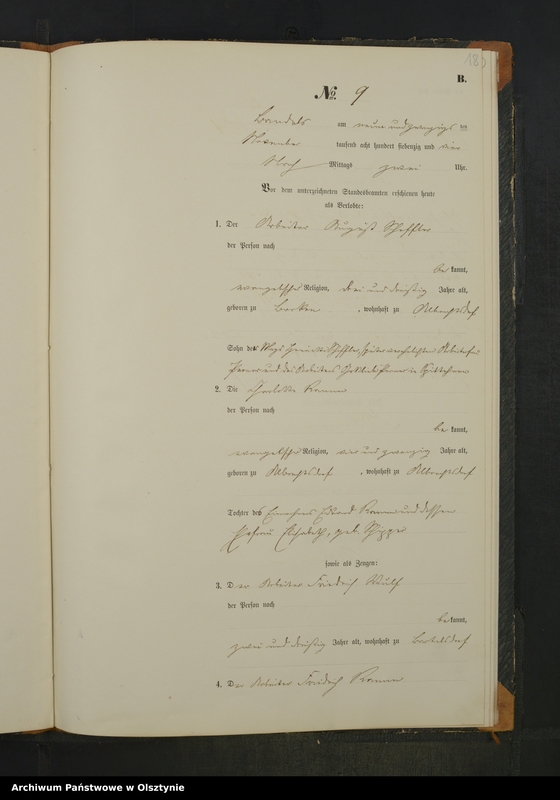 180
B.
No. 9
am neun und zwanzigs ten
November tausend acht hundert siebenzig und vier
Nach Mittags zwei Uhr.
Vor dem unterzeichneten Standesbeamten erschienen heute
als Verlobte:
1. Der Arbeiter August Scheffler
der Person nach
be kannt,
evangelischer Religion, drei und dreißig Jahre alt,
geboren zu Borken, wohnhaft zu Albrechtsdorf
Sohn der Scheffler, später verehelichten Arbeiter
und des Arbeiters in
2. Die Charlotte
der Person nach
be kannt,
evangelischer Religion, vier und zwanzig Jahre alt,
geboren zu Albrechtsdorf, wohnhaft zu Albrechtsdorf
Tochter des Eduard und dessen
Ehefrau Elisabeth, geb.
sowie als Zeugen:
3. Der Arbeiter Friedrich Wulf
der Person nach
be kannt,
zwei und dreißig Jahre alt, wohnhaft zu
4. Der Arbeiter Friedrich
Archiwum Państwowe w Olsztynie